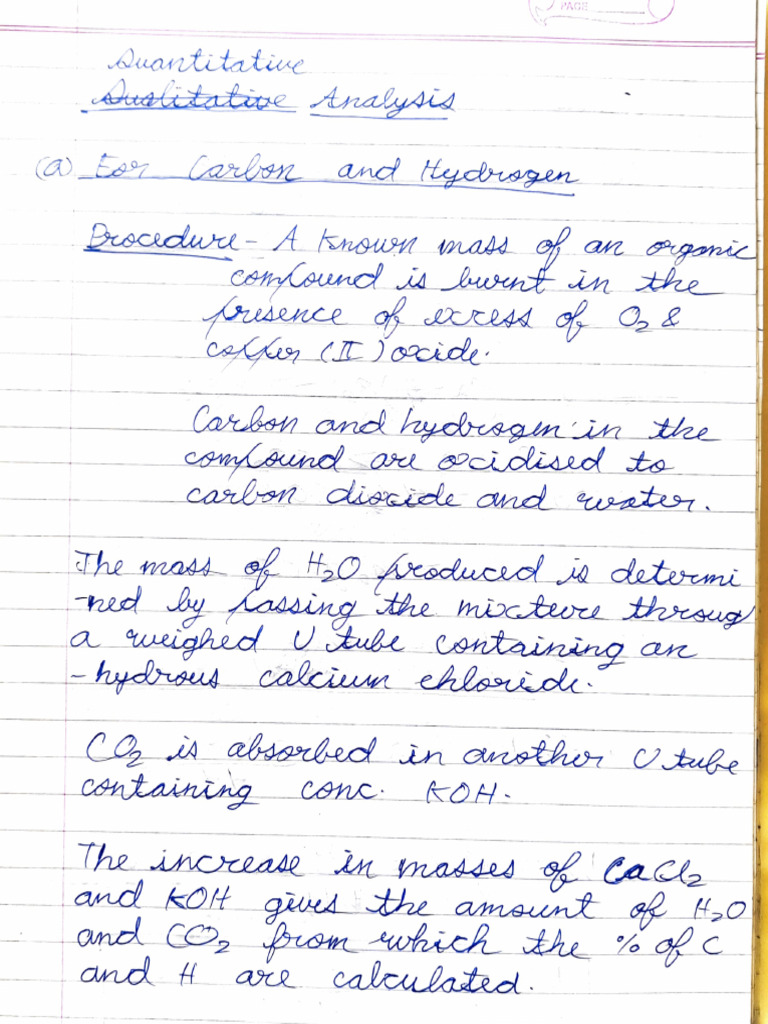 PAGE
Quantitative
Qualitative Analysis
(a) For Carbon and Hydrogen
Procedure - A known mass of an organic
compound is burnt in the
presence of excess of O₂ &
copper (II) oxide.
Carbon and hydrogen in the
compound are oxidised to
carbon dioxide and water.
The mass of H₂O produced is determi
-ned by passing the mixture throug
a weighed U tube containing an
-hydrous calcium chloride.
CO₂ is absorbed in another U tube
containing conc. KOH.
The increase in masses of CaCl₂
and KOH gives the amount of H₂O
and CO₂ from which the % of C
and H are calculated.